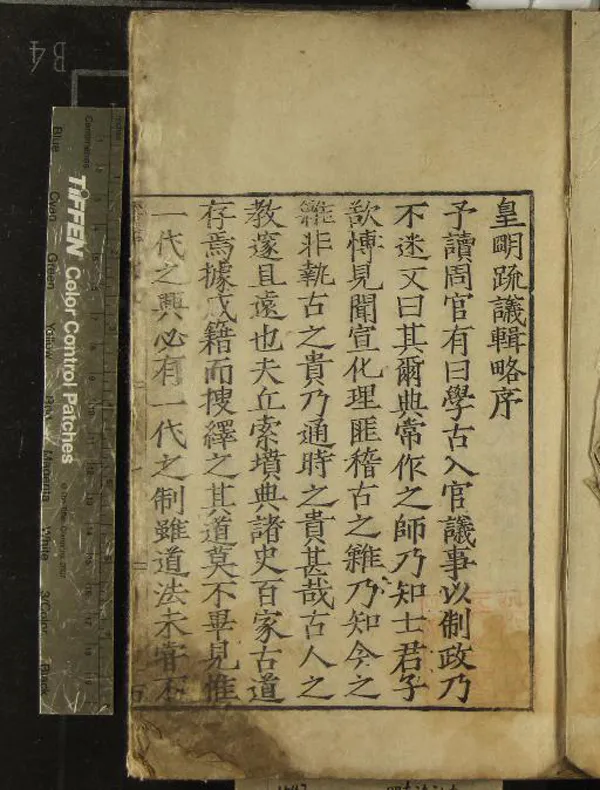 皇明疏議輯略序
予讀周官有曰學古入官議事以制政乃
不迷又曰其爾典常作之師乃知士君子
欲慱見聞宣化理匪稽古之難乃知今之
難非執古之貴乃通時之貴甚哉古人之
教邃且遠也夫丘索墳典諸史百家古道
存焉據成籍而搜繹之其道莫不畢見惟
一代之興必有一代之制雖道法未嘗不
B4
TIFFEN Color Control Patches
Blue
Cyan
Green
Yellow
Red
Magenta
White
3/Color
Black
Centimetres
Inches